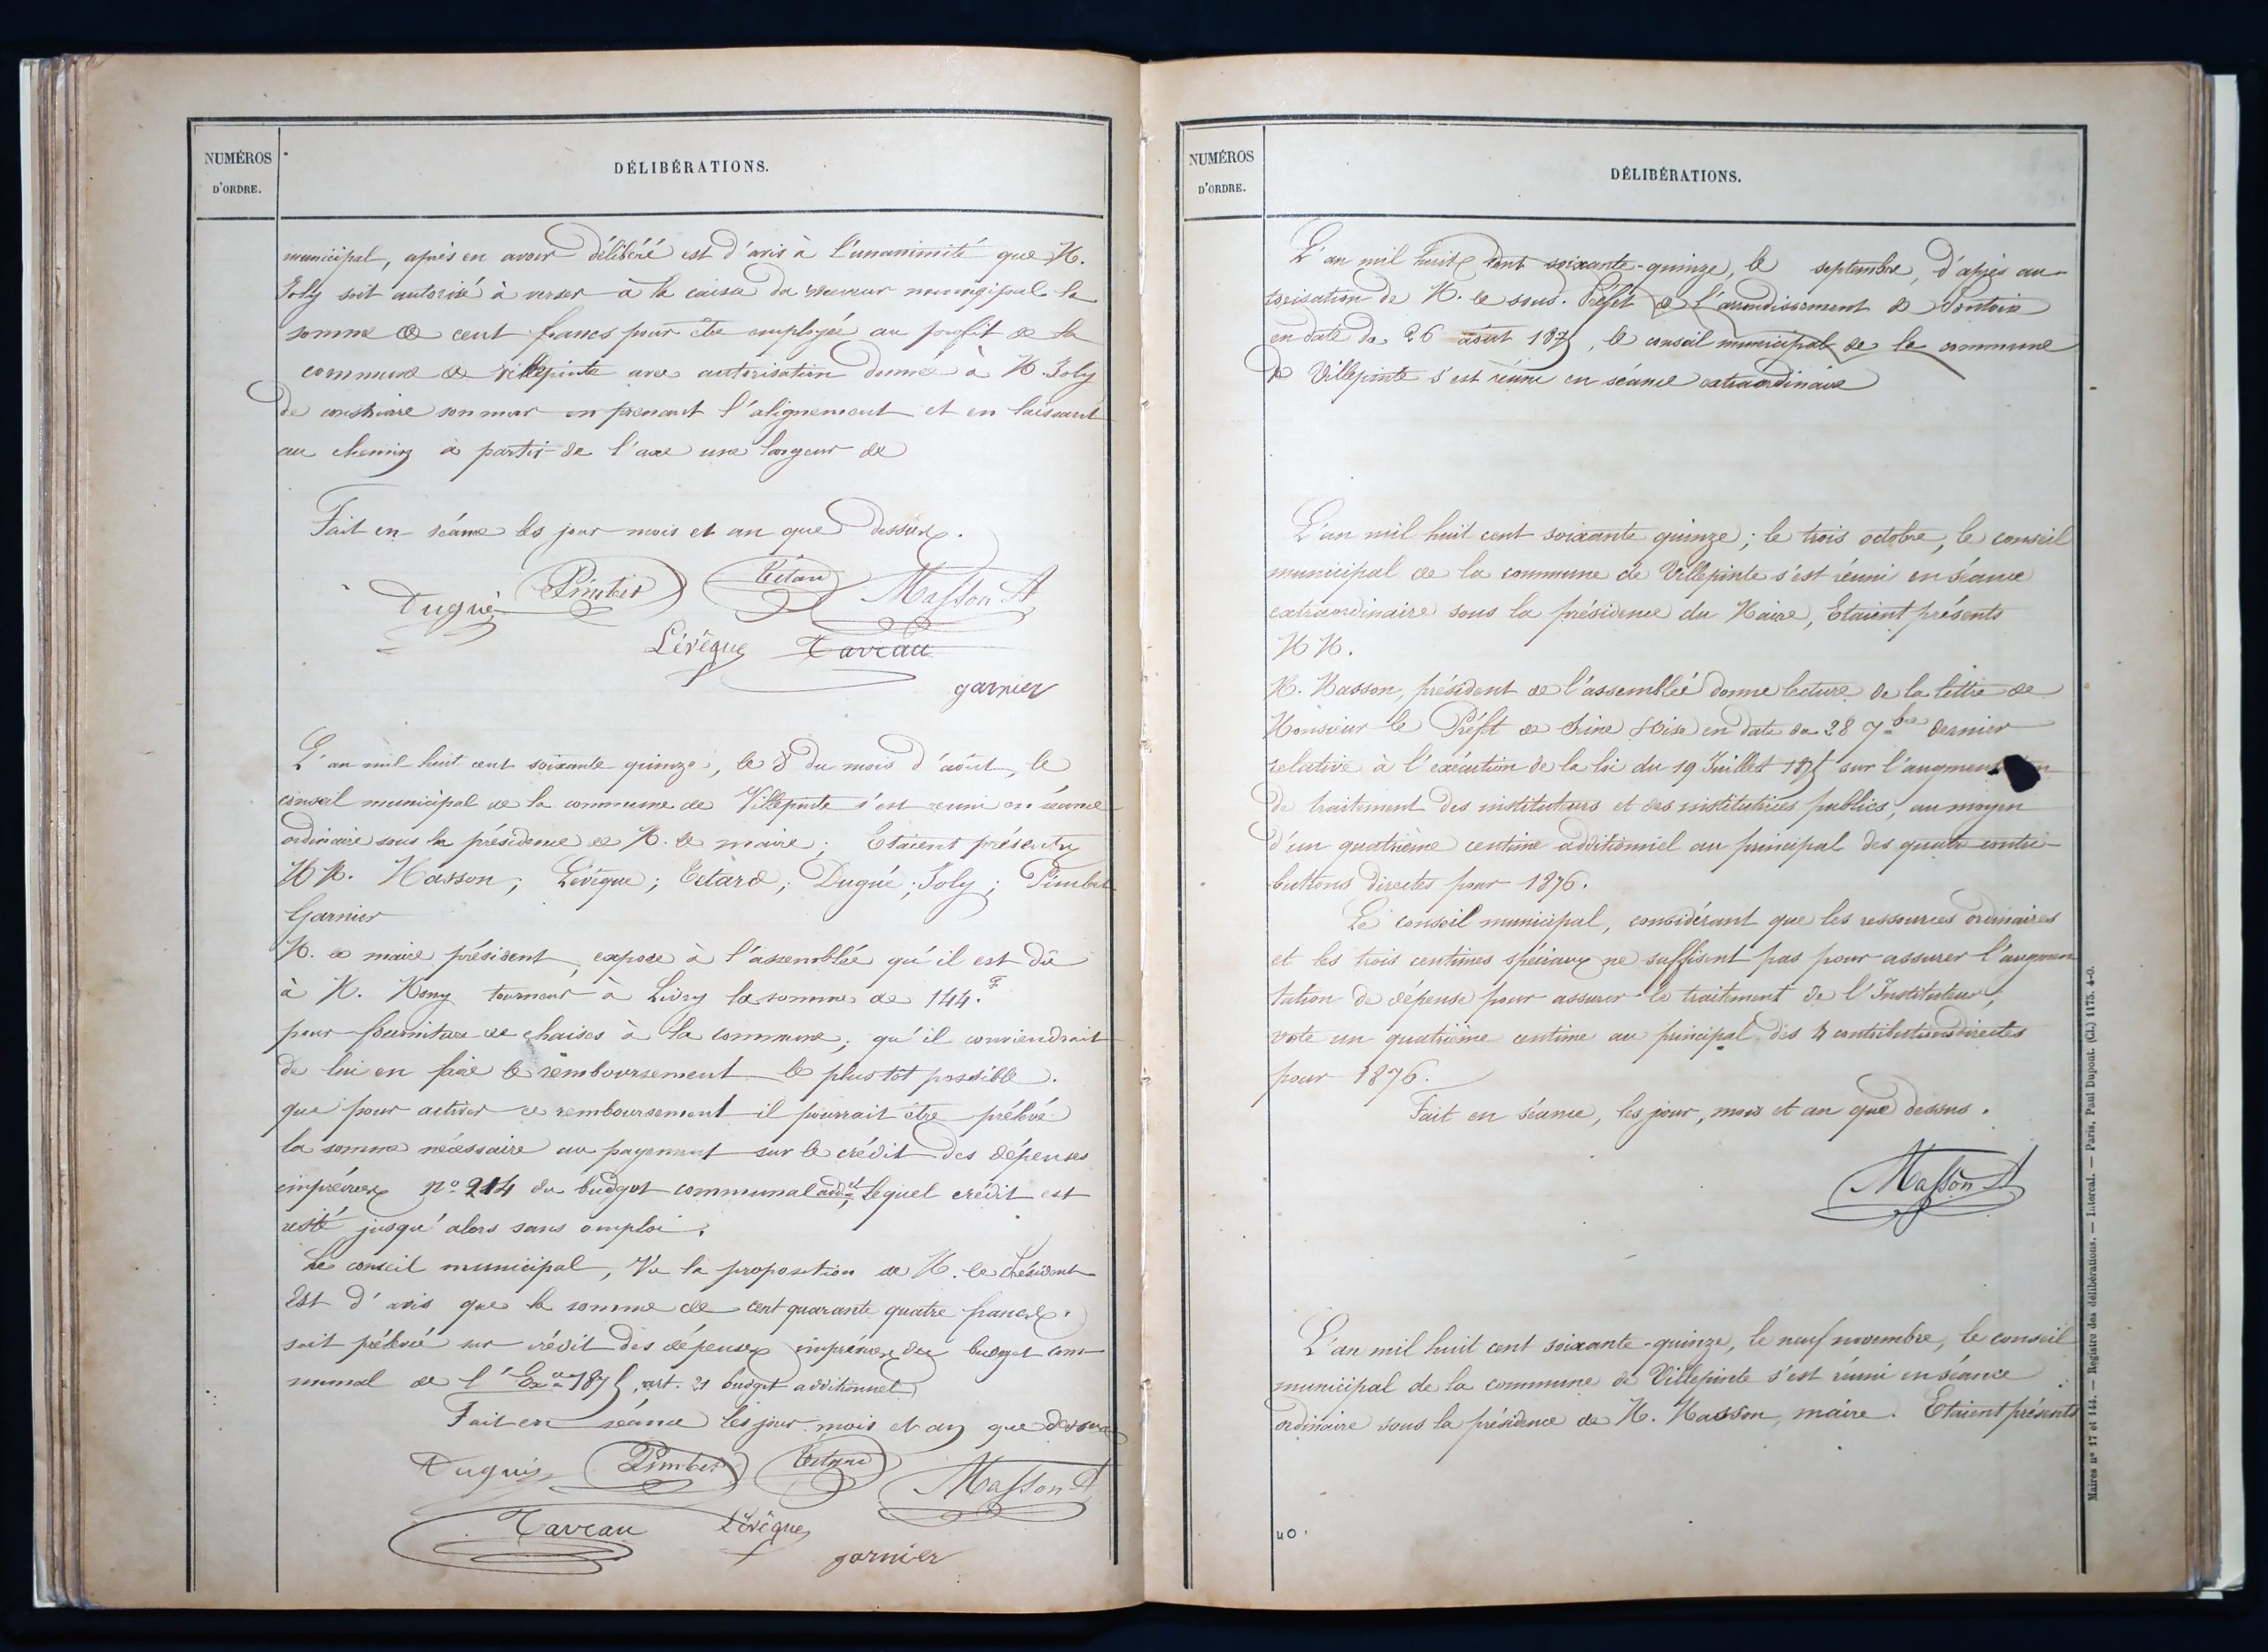 NUMÉROS
D'ORDRE.
DÉLIBÉRATIONS.
municipal, après en avoir délibéré est d'avis à l'unanimité que M.
Joly soit autorisé à verser à la caisse du receveur municipal la
somme de cent francs pour être employée au profit de la
commune de Villepinte avec autorisation donnée à M. Joly
de construire son mur en prenant l'alignement et en laissant
au chemin à partir de l'axe une largeur de
Fait en séance les jour mois et an que dessus.
Dugué Pimbet Etard Masson A
Lévêque Taveau
garnier
L'an mil huit cent soixante quinze, le 8 du mois d'août, le
conseil municipal de la commune de Villepinte s'est réuni en séance
ordinaire sous la présidence de M. le maire; Etaient présents
MM. Masson; Lévêque; Etard; Dugué; Joly; Pimbet
Garnier
M. le maire président, expose à l'assemblée qu'il est dû
à M. Mony tourneur à Livry la somme de 144.F
pour fourniture de chaises à la commune; qu'il conviendrait
de lui en faire le remboursement le plus tôt possible.
que pour activer ce remboursement il pourrait être prélevé
la somme nécessaire au payement sur le crédit des dépenses
imprévues no 214 du budget communal addel, lequel crédit est
resté jusqu'alors sans emploi.
Le conseil municipal, Vu la proposition de M. le Président
Est d'avis que la somme de cent quarante quatre francs.
soit prélevée sur crédit des dépenses imprévues du budget com-
munal de l'Exce 1875, art. 21 budget additionnel
Fait en séance les jour mois et an que dessus
Dugué Pimbet Etard Masson A
Taveau Lévêque
garnier
NUMÉROS
D'ORDRE.
DÉLIBÉRATIONS.
L'an mil huit cent soixante-quinze, le septembre, d'après au-
torisation de M. le sous-Préfet de l'arrondissement de Pontoise
en date du 26 août 1875, le conseil municipal de la commune
de Villepinte s'est réuni en séance extraordinaire
L'an mil huit cent soixante quinze; le trois octobre, le conseil
municipal de la commune de Villepinte s'est réuni en séance
extraordinaire sous la présidence du Maire, Etaient présents
MM.
M. Masson, président de l'assemblée donne lecture de la lettre de
Monsieur le Préfet de Seine & Oise en date du 28 7bre dernier
relative à l'exécution de la loi du 19 Juillet 1875 sur l'augmentation
de traitement des instituteurs et des institutrices publics, au moyen
d'un quatrième centime additionnel au principal des quatre contri-
butions directes pour 1876.
Le conseil municipal, considérant que les ressources ordinaires
et les trois centimes spéciaux ne suffisent pas pour assurer l'augmen
tation de dépense pour assurer le traitement de l'Instituteur,
vote un quatrième centime au principal des 4 contributions directes
pour 1876.
Fait en séance, les jour, mois et an que dessus.
Masson A
L'an mil huit cent soixante-quinze, le neuf novembre, le conseil
municipal de la commune de Villepinte s'est réuni en séance
ordinaire sous la présidence de M. Masson, maire. Etaient présents
40.
Maires nos 17 et 144. — Registre des délibérations. — Intercal. — Paris, Paul Dupont. (Cl.) 1175. 4-0.